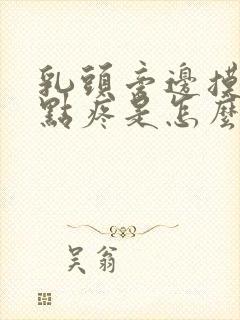 乳頭旁邊摸
點疼是怎麼
吴翁